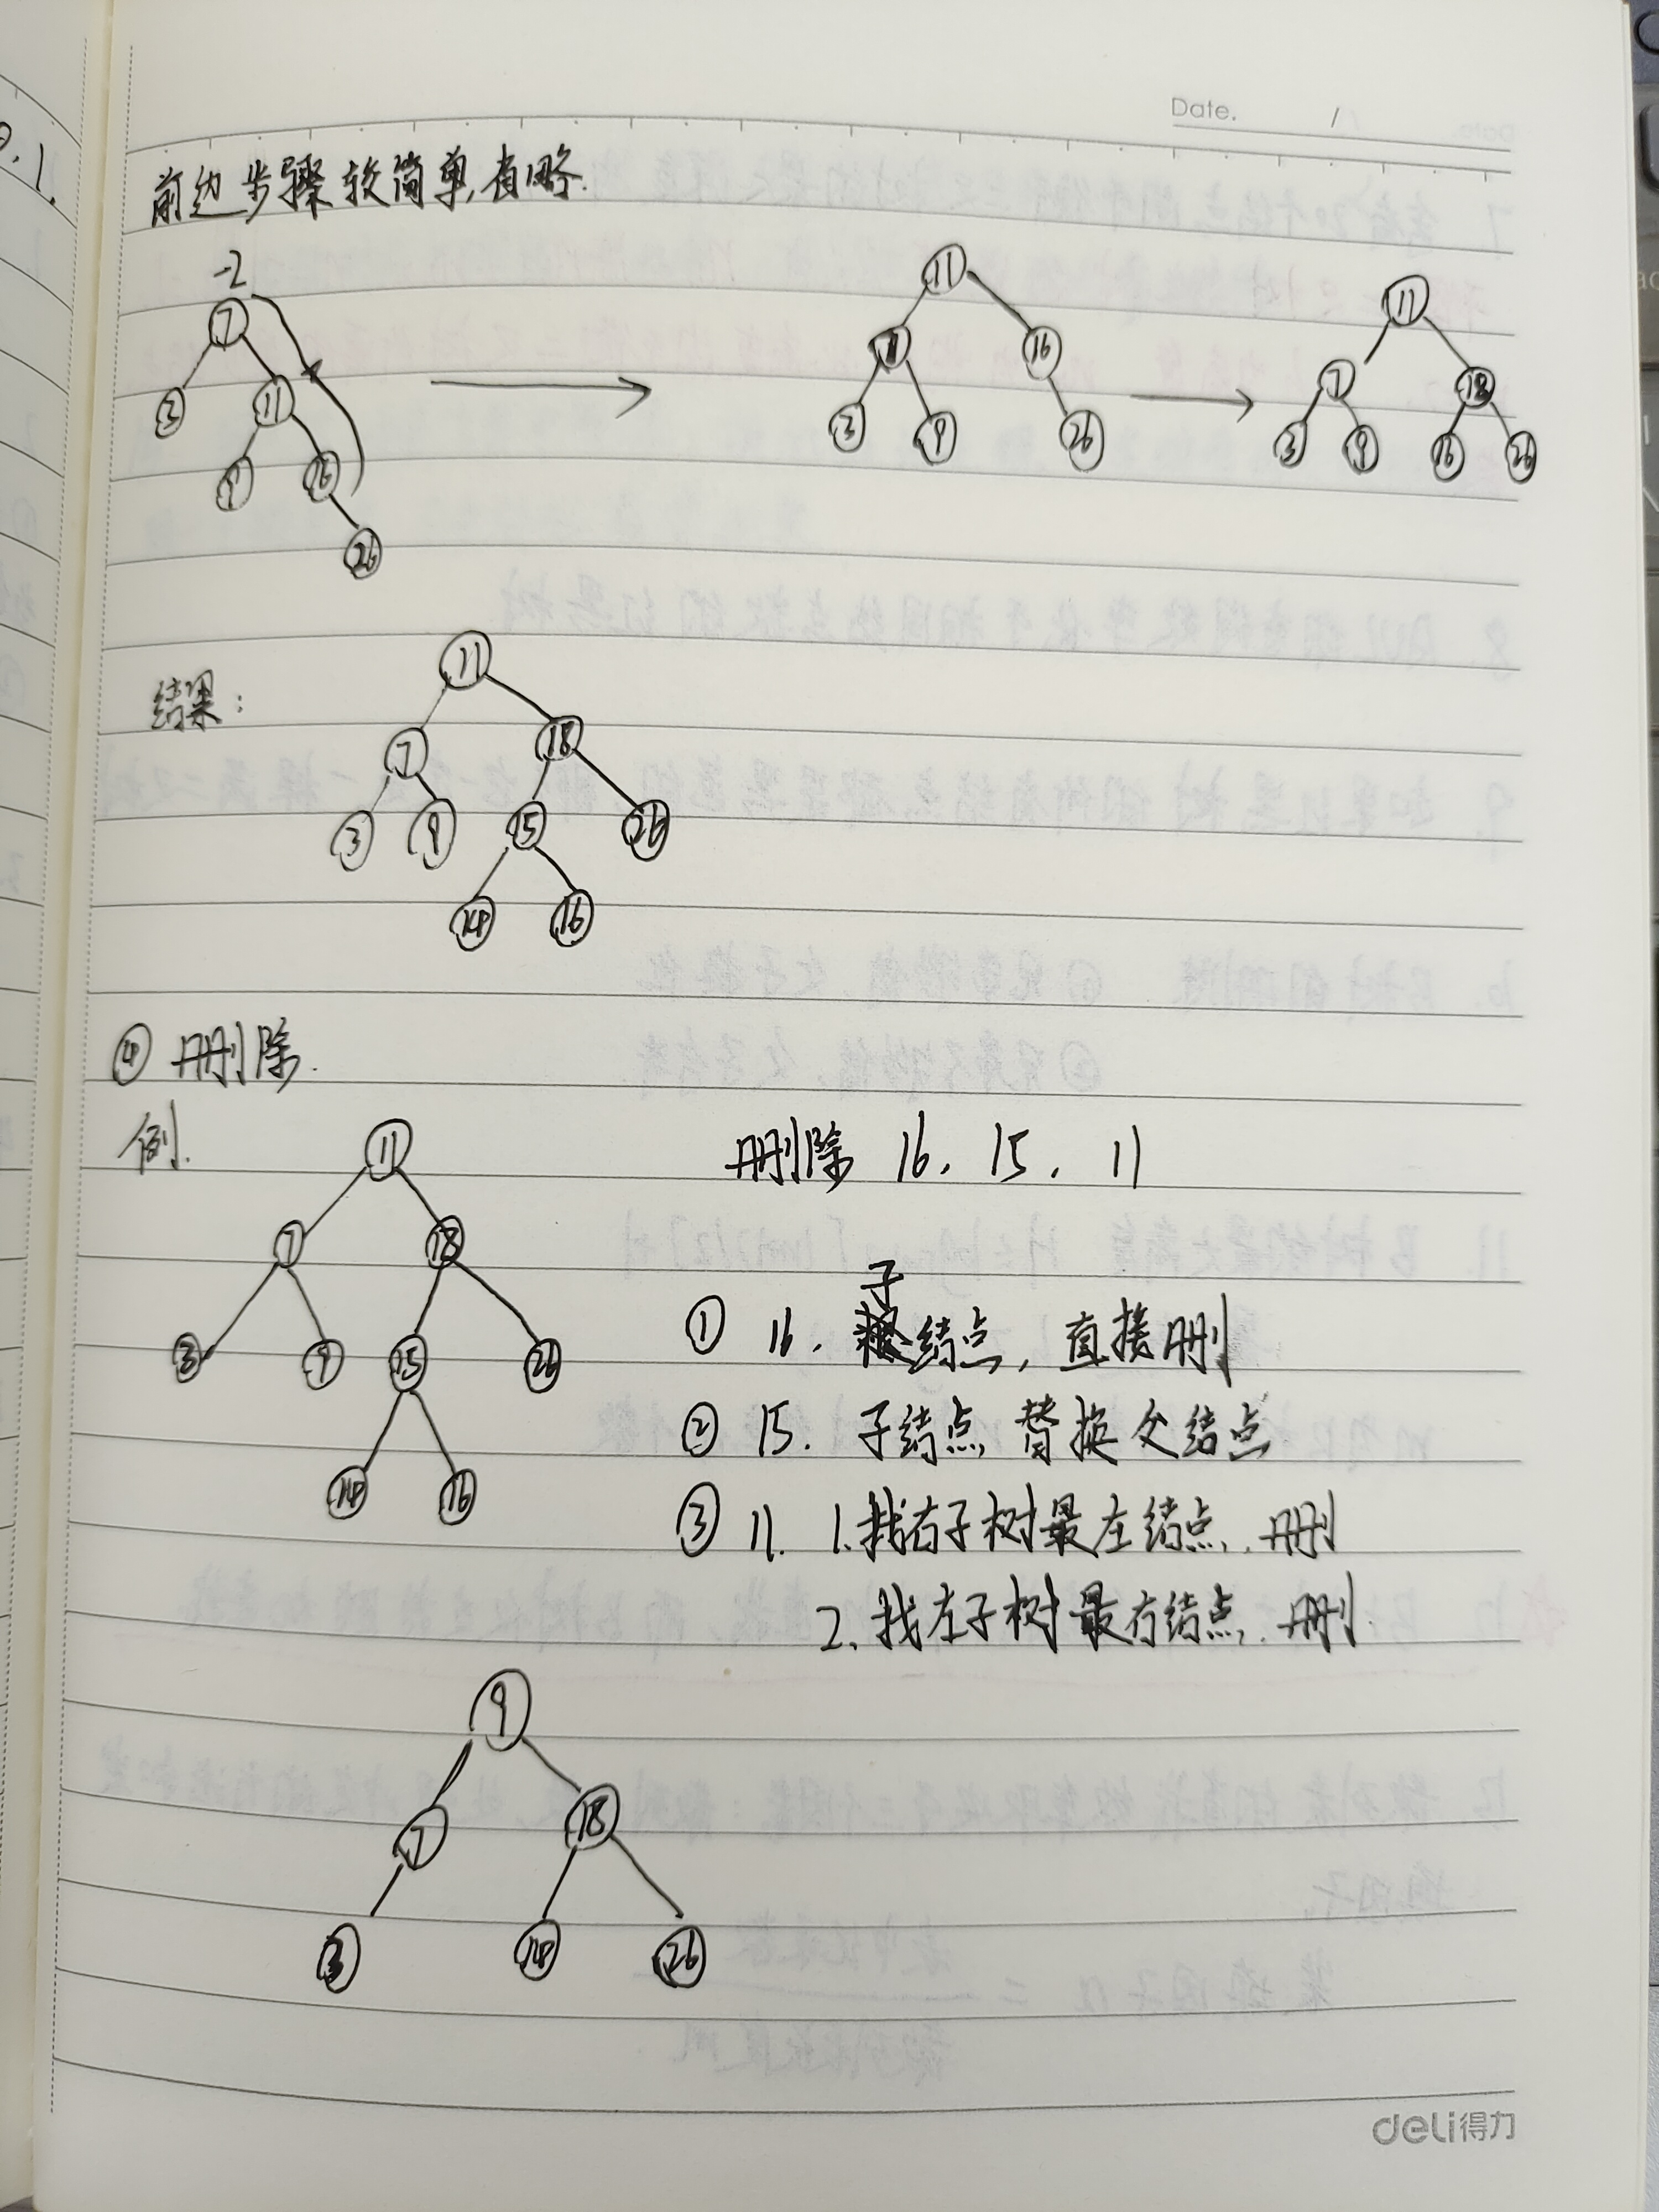 Date. /
0.1.
前边步骤较简单,省略.
-2
7
3 11
9 16
26
11
7 16
3 9 26
11
7 18
3 9 16 26
结果:
11
7 18
3 9 15 26
14 16
④ 删除.
例.
删除 16. 15. 11
11
7 18
3 9 15 26
14 16
① 16. 子结点, 直接删
② 15. 子结点 替换父结点
③ 11. 1.找右子树最左结点, 删
2. 找左子树最右结点, 删.
9
7 18
3 14 26
deli得力